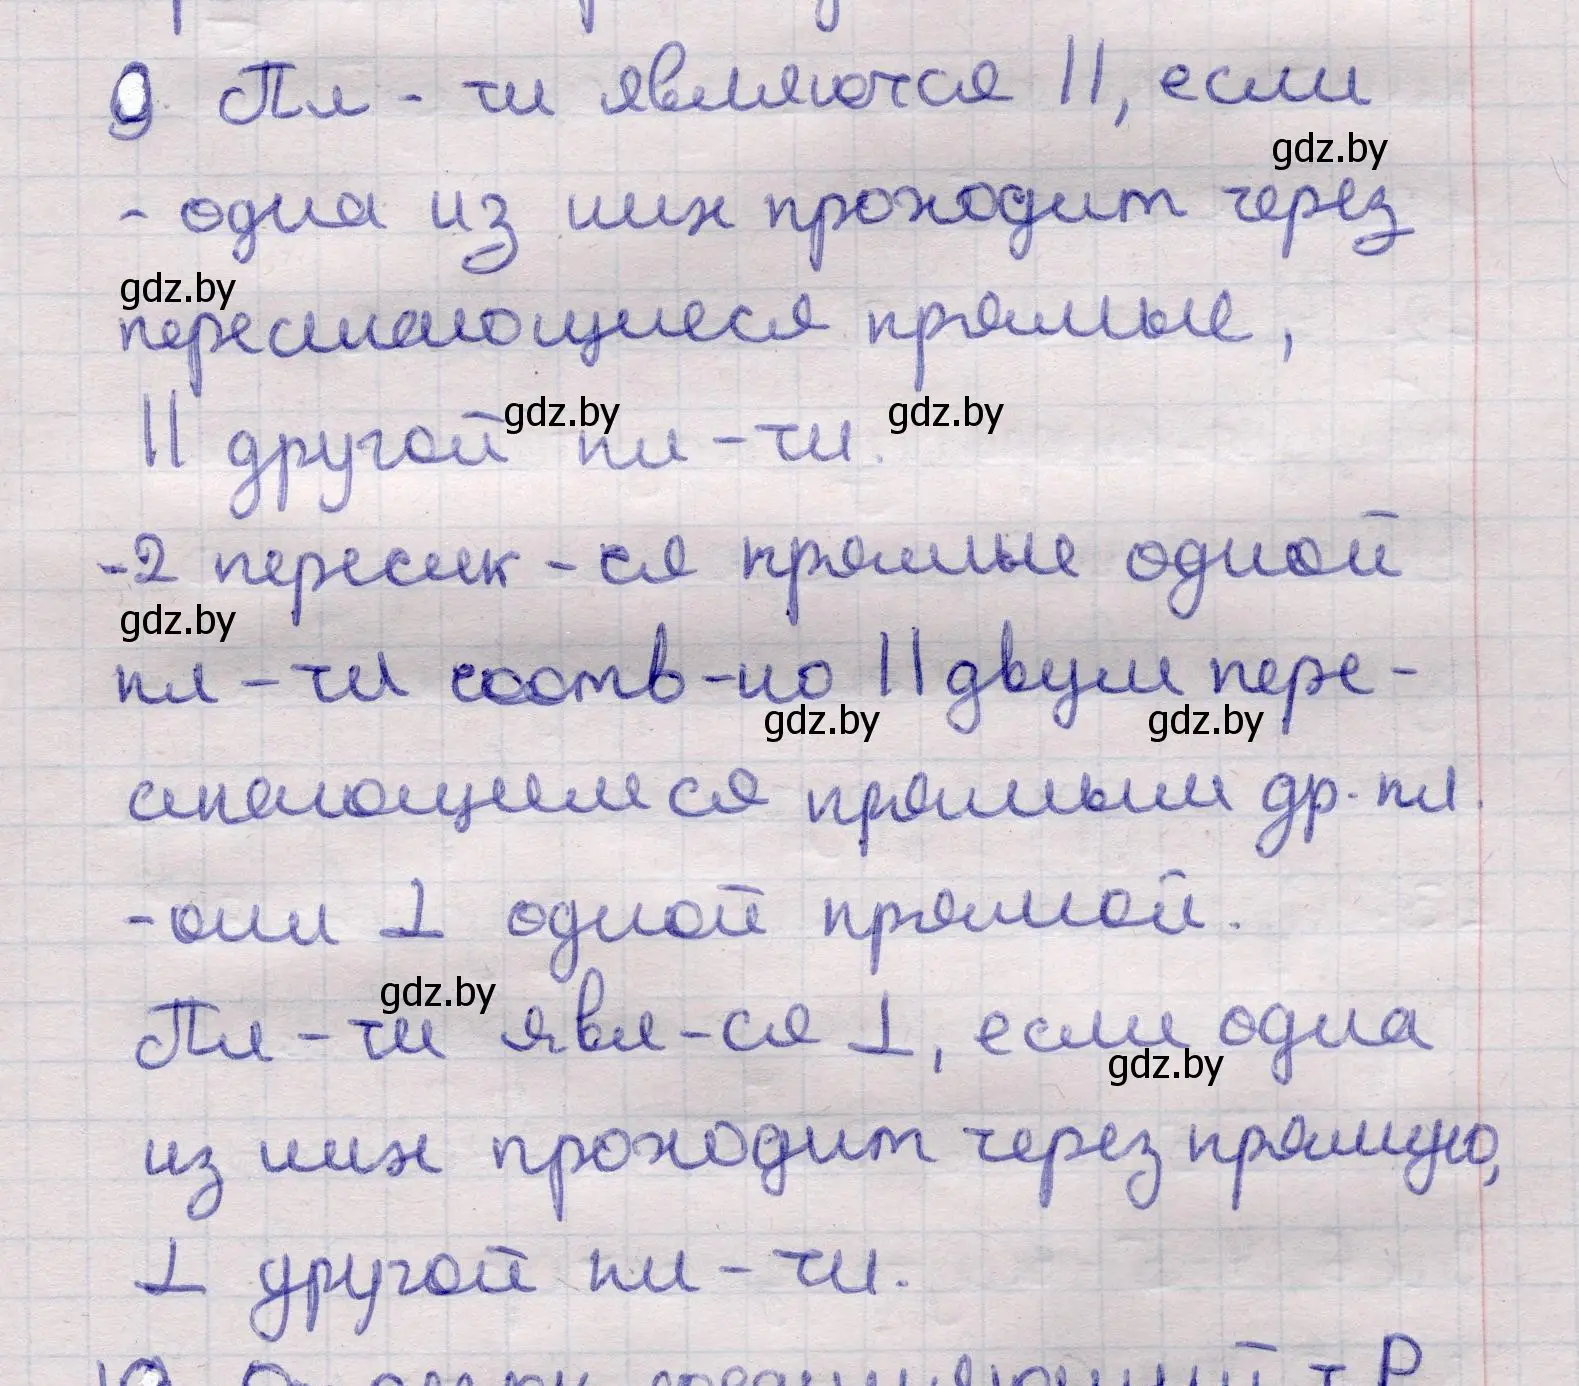 9. Пл-ти являются ||, если
gdz.by
- одна из них проходит через
gdz.by
пересекающиеся прямые,
|| другой пл-ти.
gdz.by gdz.by
-2 пересек-ся прямые одной
gdz.by
пл-ти соотв-но || двум пере-
gdz.by gdz.by
секающимся прямым др. пл.
-они ⊥ одной прямой.
gdz.by
Пл-ти явл-ся ⊥, если одна
gdz.by
из них проходит через прямую,
⊥ другой пл-ти.